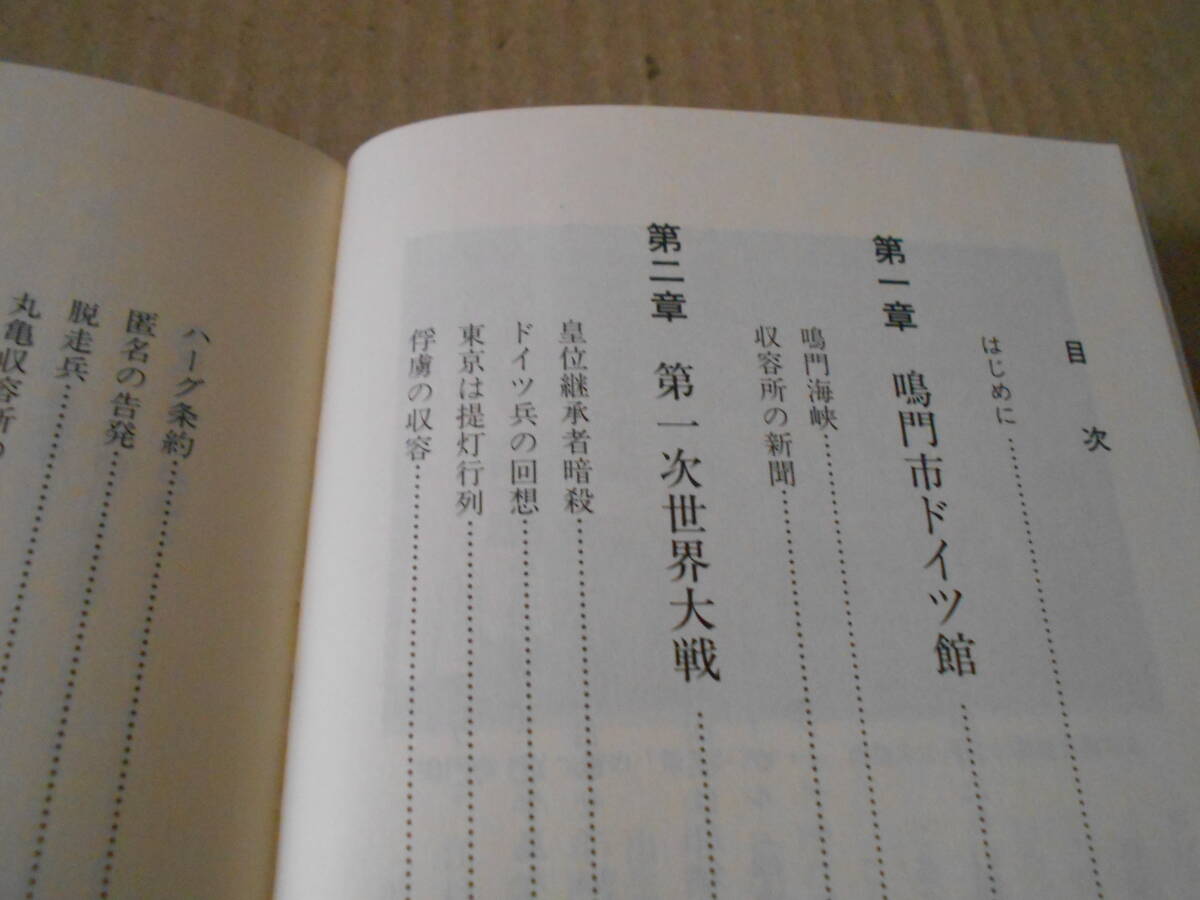 目次
はじめに
第一章 鳴門市ドイツ館
鳴門海峡
収容所の新聞
第二章 第一次世界大戦
皇位継承者暗殺
ドイツ兵の回想
東京は提灯行列
俘虜の収容
ハーグ条約
匿名の告発
脱走兵
丸亀収容所の